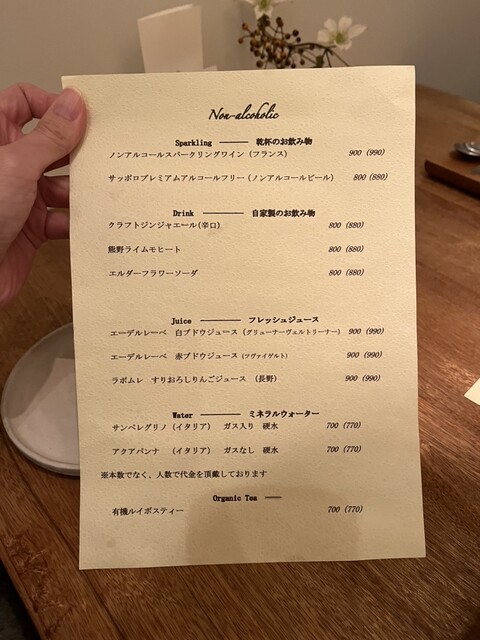 Non-alcoholic
Sparkling ——— 乾杯のお飲み物
ノンアルコールスパークリングワイン (フランス) 900 (990)
サッポロプレミアムアルコールフリー (ノンアルコールビール) 800 (880)
Drink ——— 自家製のお飲み物
クラフトジンジャエール(辛口) 800 (880)
熊野ライムモヒート 800 (880)
エルダーフラワーソーダ 800 (880)
Juice ——— フレッシュジュース
エーデルレーベ 白ブドウジュース (グリューナーヴェルトリーナー) 900 (990)
エーデルレーベ 赤ブドウジュース (ツヴァイゲルト) 900 (990)
ラボムレ すりおろしりんごジュース (長野) 900 (990)
Water ——— ミネラルウォーター
サンペレグリノ (イタリア) ガス入り 硬水 700 (770)
アクアパンナ (イタリア) ガスなし 硬水 700 (770)
※本数でなく、人数で代金を頂戴しております
Organic Tea ——
有機ルイボスティー 700 (770)